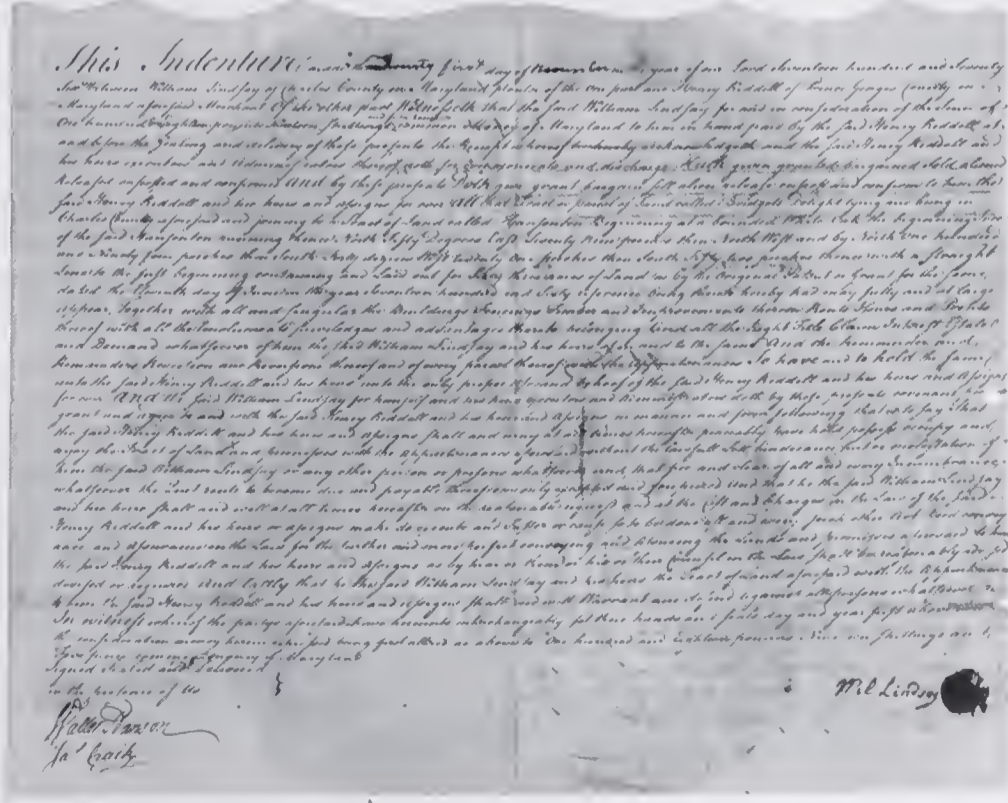 This Indenture made the Twenty first day of November in year of our Lord Seventeen hundred and Seventy
Six Between William Lindsay of Charles County in Maryland planter of the one part and Henry Riddell of Prince Georges County in
Maryland aforesaid Merchant of the other part Witnesseth that the said William Lindsay for and in consideration of the Sum of
One hundred Eighteen pounds Nineteen Shillings common Money of Maryland to him in hand paid by the said Henry Riddell at
and before the Sealing and delivery of these presents the Receipt whereof he hereby acknowledgeth and the said Henry Riddell and
his heirs executors and Administrators thereof doth for ever and discharge Hath given granted bargained Sold aliened
Released enfeoffed and confirmed And by these presents Doth give grant bargain sell alien release enfeoff and confirm to him the
said Henry Riddell and his heirs and assigns for ever All that Tract or parcel of Land called Delight lying and being in
Charles County aforesaid and joining to a Tract of Land called Beginning at a bounded White Oak the beginning Tree
of the said running thence North Fifty Degrees East Seventy Nine perches then North West and by North One hundred
and Ninety four perches then South Forty degrees West Twenty One perches then South Fifty two perches thence with a Straight
Line to the first beginning containing and Laid out for Acres of Land as by the Original Patent or Grant for the same
dated the Eleventh day of June in the year Seventeen hundred and Sixty reference being thereto hereby had may fully and at large
appear Together with all and singular the Buildings Fencings Timber and Improvements thereon Rents Issues and Profits
thereof with all the Emoluments priviledges and advantages thereto belonging and all the Right Title Claim Interest Estate
and Demand whatsoever of him the said William Lindsay and his heirs of in and to the same And the remainder and
Remainders Reversion and Reversions thereof and of every parcel thereof with the Appurtenances To have and to hold the same
unto the said Henry Riddell and his heirs unto the only proper use and behoof of the said Henry Riddell and his heirs and Assigns
for ever And the said William Lindsay for himself and his heirs executors and Administrators doth by these presents covenant
grant and agree to and with the said Henry Riddell and his heirs and Assigns in manner and form following that is to say that
the said Henry Riddell and his heirs and assigns shall and may at all times hereafter peaceably have hold possess occupy and
enjoy the Tract of Land and premisses with the appurtenances aforesaid without the lawfull Lett hindrance or molestation of
him the said William Lindsay or any other person or persons whatsoever and that free and clear of all and every Incumbrance
whatsoever the Quit rents to become due and payable thereforth only excepted and foreprized And that he the said William Lindsay
and his heirs shall and will at all times hereafter on the reasonable request and at the cost and Charges in the Law of the said
Henry Riddell and his heirs or assigns make do execute and Suffer or cause to be done all and every such other Act Deed convey
ance and assurance in the Law for the further and more perfect conveying and assuring the Lands and premisses aforesaid to him
the said Henry Riddell and his heirs and assigns as by him or them or his or their Council in the Law shall be reasonably ad
vised or required And Lastly that he the said William Lindsay and his heirs the Tract of land aforesaid with the Appurtenances
to him the said Henry Riddell and his heirs and assigns shall and will Warrant and defend against all persons whatsoever
In witness whereof the partys aforesaid have hereunto interchangeably set their hands and seals day and year first above written
the consideration money herein expressed being first altered as above to One hundred and Eighteen pounds Nineteen Shillings and
five pence common money of Maryland
Signed Sealed and Delivered
in the presence of Us
Wil Lindsay
Walter
Jas Craik